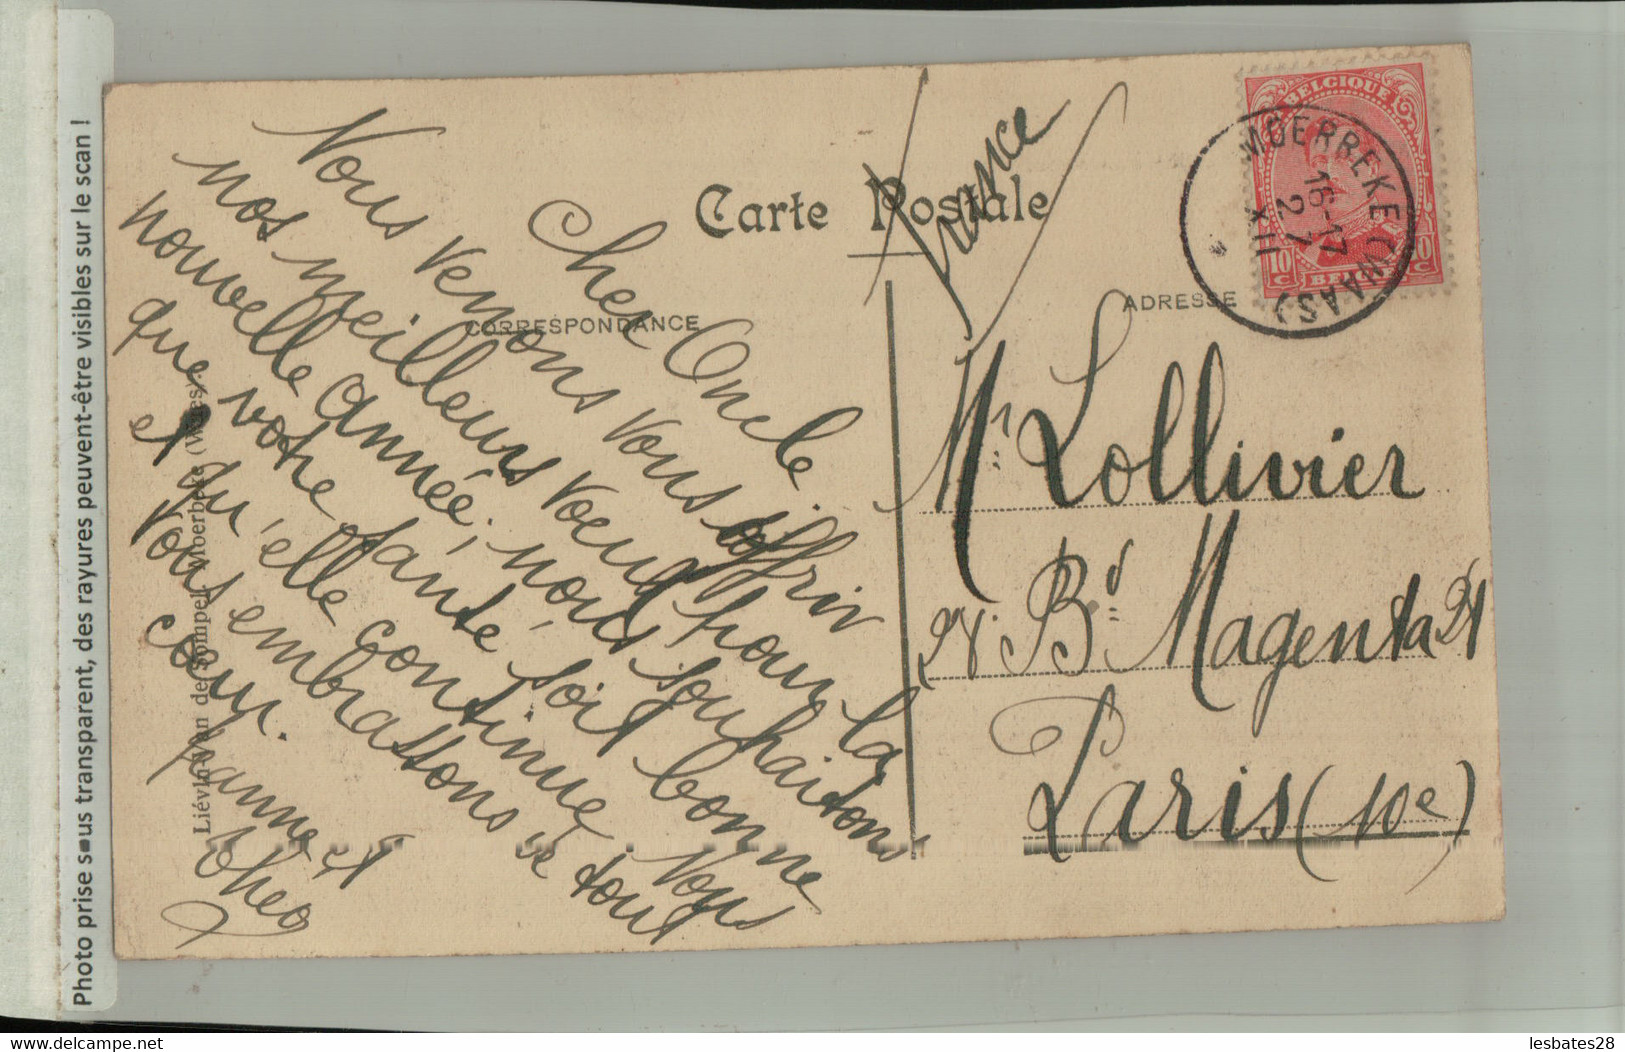 Photo prise sous transparent, des rayures peuvent-être visibles sur le scan !
Carte Postale
France
CORRESPONDANCE
ADRESSE
BELGIQUE
10 C
10 C
BELGIË
MOERBEKE (WAAS)
16-17
27
XII
Cher Oncle
Vous venons vous offrir
nos meilleurs voeux pour la
nouvelle année; nous souhaitons
que votre santé soit bonne
et qu'elle continue. Nous
vous embrassons de tout
coeur.
Jeanne et
Théo
Mr. Lollivier
21. Bd. Magenta 21
Paris (10e)
Liévin Van de Sompel, Moerbeke (Waes).
lesbates28